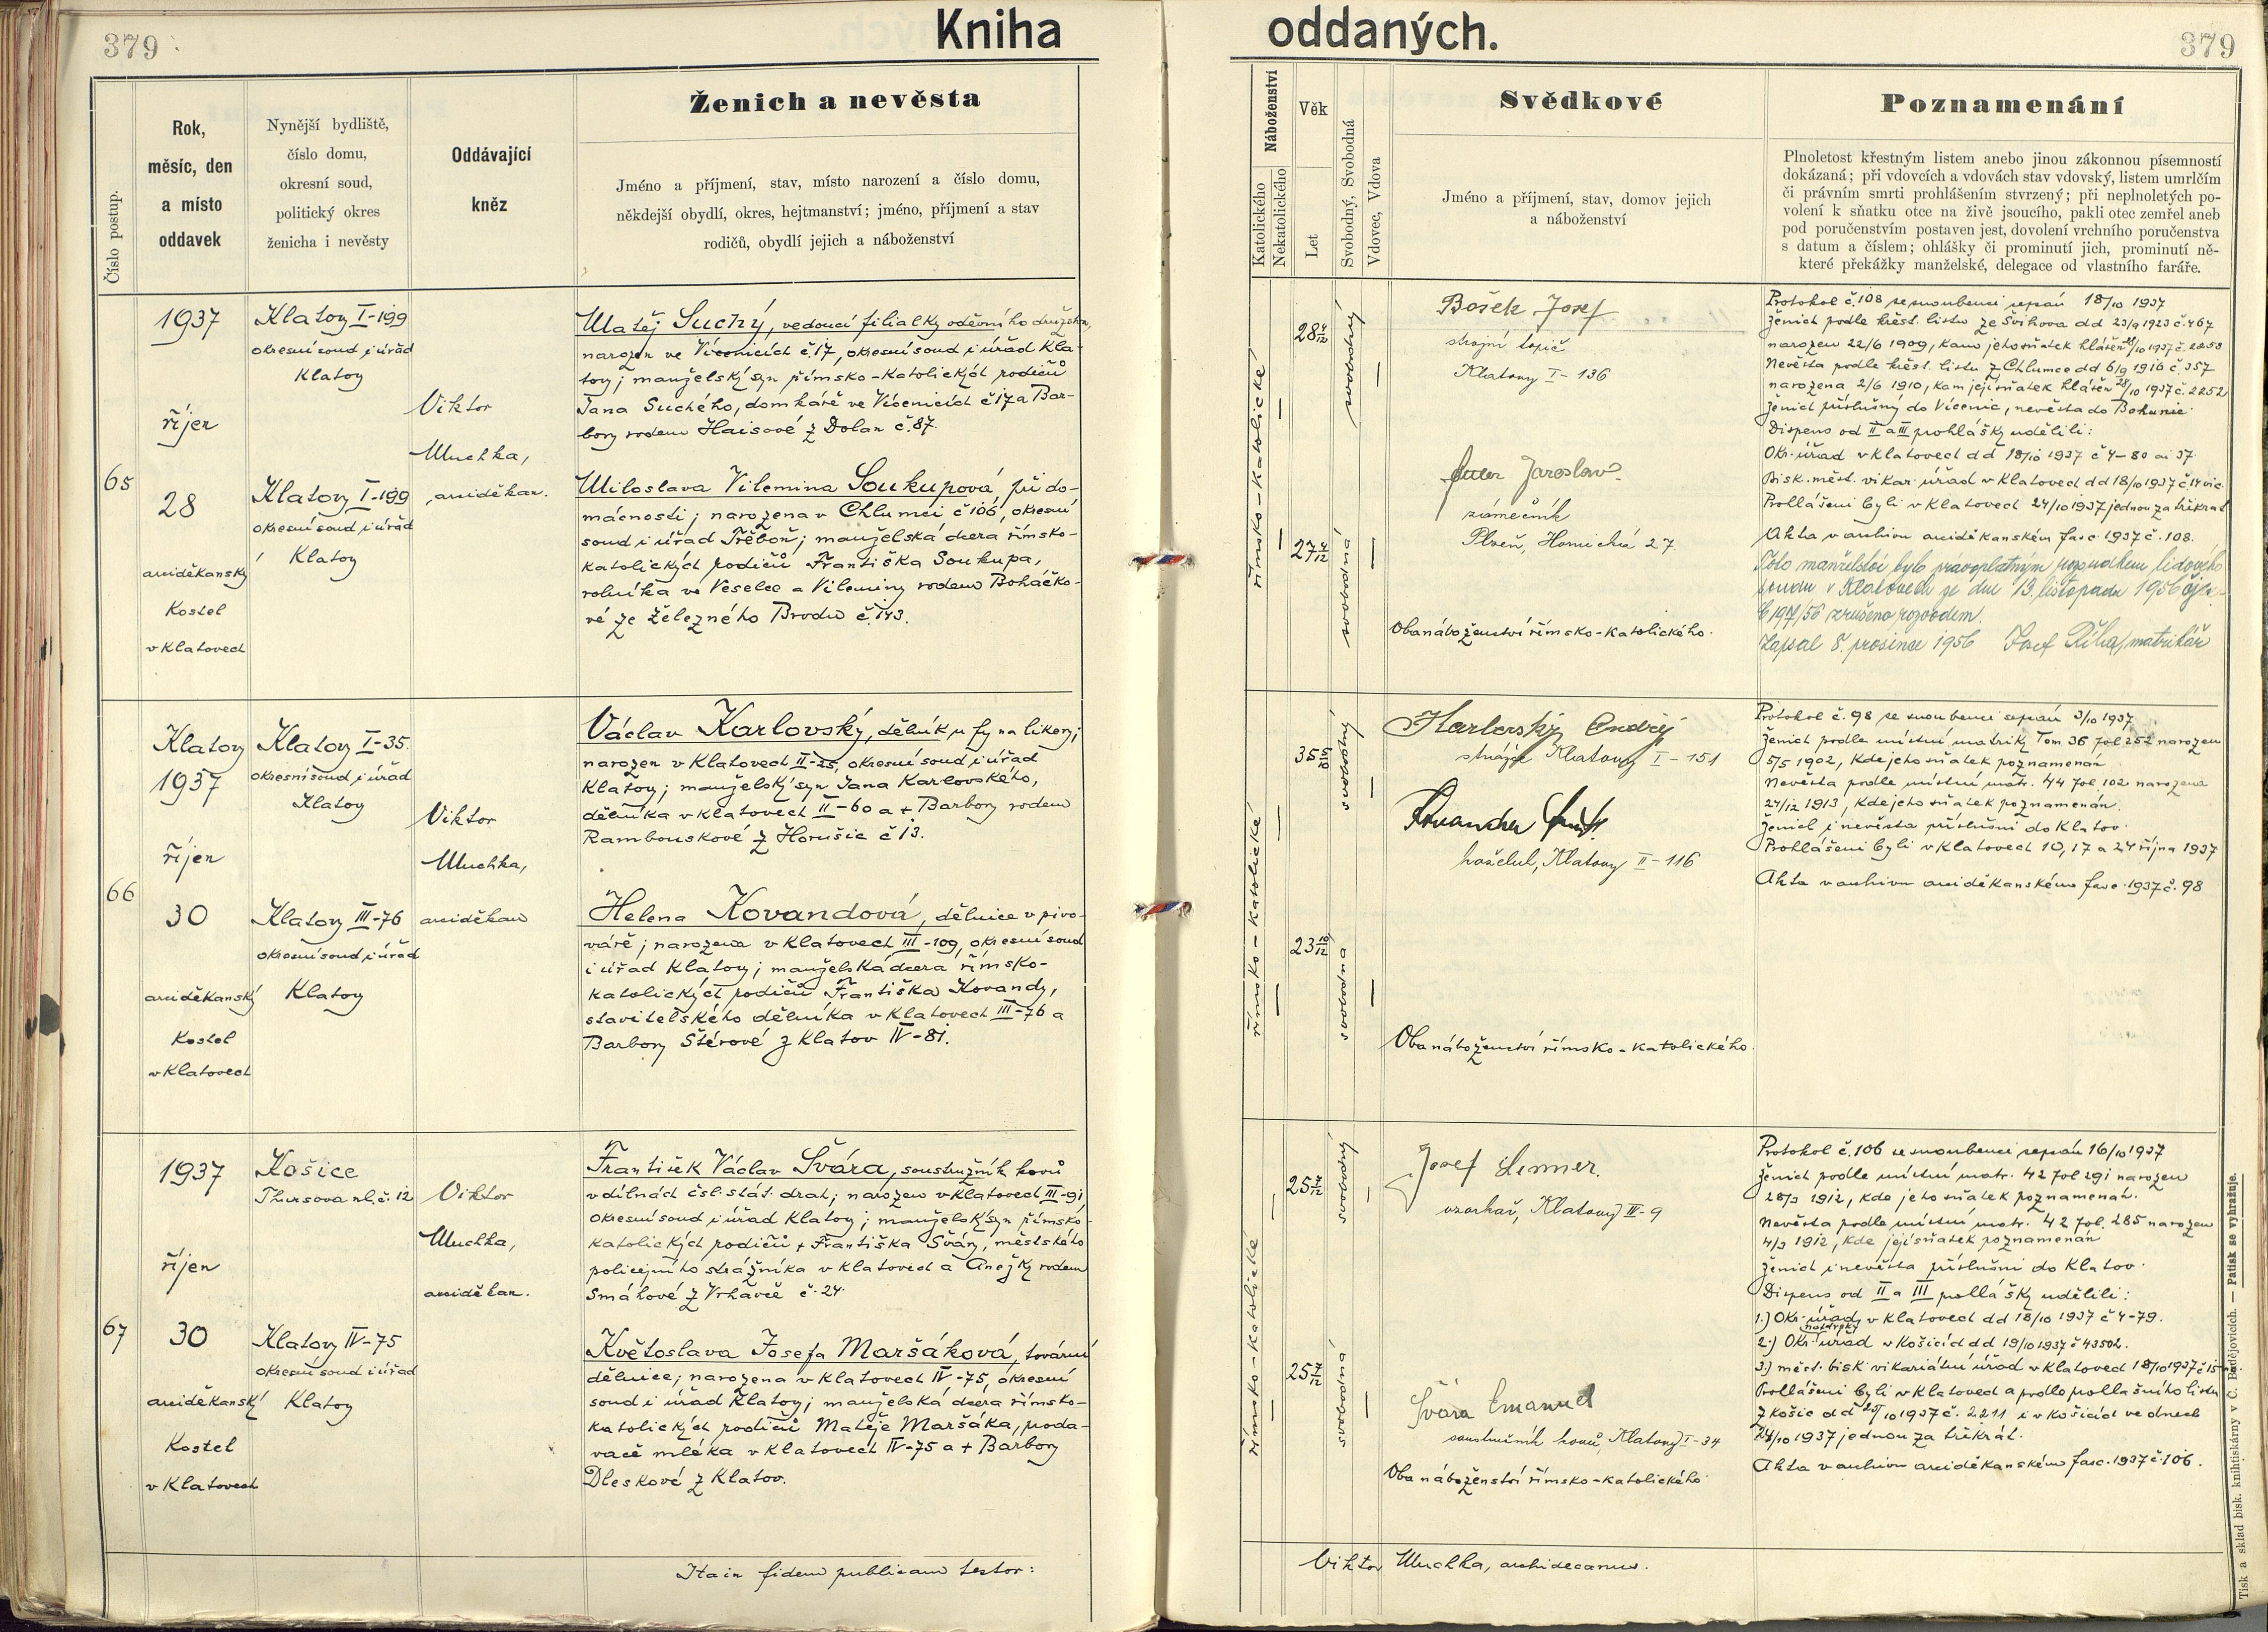 379
Kniha
oddaných.
379
Číslo postup.
Rok,
měsíc, den
a místo
oddavek
Nynější bydliště,
číslo domu,
okresní soud,
politický okres
ženicha i nevěsty
Oddávající
kněz
Ženich a nevěsta
Jméno a příjmení, stav, místo narození a číslo domu,
někdejší obydlí, okres, hejtmanství; jméno, příjmení a stav
rodičů, obydlí jejich a náboženství
Náboženství
Katolického
Nekatolického
Věk
Let
Svobodný, Svobodná
Vdovec, Vdova
Svědkové
Jméno a příjmení, stav, domov jejich
a náboženství
Poznamenání
Plnoletost křestným listem anebo jinou zákonnou písemností
dokázaná; při vdovcích a vdovách stav vdovský, listem umrlčím
či právním smrti prohlášením stvrzený; při neplnoletých po-
volení k sňatku otce na živě jsoucího, pakli otec zemřel aneb
pod poručenstvím postaven jest, dovolení vrchního poručenstva
s datum a číslem; ohlášky či prominutí jich, prominutí ně-
které překážky manželské, delegace od vlastního faráře.
65
1937
říjen
28
arciděkanský
Kostel
v Klatovech
Klatovy I-199
okresní soud i úřad
Klatovy
Klatovy I-199
okresní soud i úřad
Klatovy
Viktor
Muchka,
arciděkan.
Matěj Suchý, vedoucí filialky oděvního družstva,
narozen ve Vícenicích č.17, okresní soud i úřad Kla-
tovy; manželský syn římsko-katolických rodičů
Jana Suchého, domkáře ve Vícenicích č 17 a Bar-
bory rodem Haisové z Dolan č.87.
Miloslava Vilemina Soukupová, při do-
mácnosti; narozena v Chlumci č 106, okresní
soud i úřad Třeboň; manželská dcera římsko-
katolických rodičů Františka Soukupa,
rolníka ve Veselce a Vileminy rodem Boháčko-
vé ze Železného Brodu č.143.
římsko-katolické
28 4/12
svobodný
27 4/12
svobodná
Bošek Josef
strojní topič
Klatovy I-136
Jaroslav
zámečník
Plzeň, 27
Oba náboženství římsko-katolického.
Protokol č.108 se snoubenci sepsán 18/10 1937
Ženich podle křest. listu ze Švihova dd 23/9 1923 č.467
narozen 22/6 1909, kam jeho sňatek hlášen 28/10 1937 č. 2253
Nevěsta podle křest. listu z Chlumce dd 6/9 1916 č.357
narozena 2/6 1910, kam její sňatek hlášen 28/10 1937 č. 2252
Ženich příslušný do Vícenic, nevěsta do Bohunic
Dispens od II a III prohlášky udělili:
Okr. úřad v Klatovech dd 18/10 1937 č 4-80 ai 37.
Bisk. měst. vikar. úřad v Klatovech dd 18/10 1937 č 14 vic.
Prohlášeni byli v Klatovech 24/10 1937 jednou za třikrát
Akta v archivu arciděkanském fasc. 1937 č. 108.
Toto manželství bylo právoplatným rozsudkem lidového
soudu v Klatovech ze dne 13. listopadu 1956 čj.
C 197/56 zrušeno rozvodem.
Zapsal 8. prosince 1956 Josef Říha, matrikář
66
Klatovy
1937
říjen
30
arciděkanský
Kostel
v Klatovech
Klatovy I-35.
okresní soud i úřad
Klatovy
Klatovy III-76
okresní soud i úřad
Klatovy
Viktor
Muchka,
arciděkan
Václav Karlovský, dělník u fy na likery;
narozen v Klatovech II-25, okresní soud i úřad
Klatovy; manželský syn Jana Karlovského,
dělníka v Klatovech II-60 a + Barbory rodem
Rambouskové z Horušic č 13.
Helena Kovandová, dělnice v pivo-
váře; narozena v Klatovech III-109, okresní soud
i úřad Klatovy; manželská dcera římsko-
katolických rodičů Františka Kovandy,
stavitelského dělníka v Klatovech III-76 a
Barbory Štérové z Klatov IV-81.
římsko-katolické
35
svobodný
23 10/12
svobodná
Karlovský Ondřej
strážce Klatovy I-151
Klatovy II-116
Oba náboženství římsko-katolického
Protokol č. 98 se snoubenci sepsán 3/10 1937
Ženich podle místní matriky Tom 36 fol 252 narozen
5/5 1902, kde jeho sňatek poznamenán
Nevěsta podle místní matr. 44 fol. 102 narozena
24/12 1913, kde jeho sňatek poznamenán.
Ženich i nevěsta příslušní do Klatov.
Prohlášeni byli v Klatovech 10, 17 a 24 října 1937
Akta v archivu arciděkanském fasc. 1937 č. 98
67
1937
říjen
30
arciděkanský
Kostel
v Klatovech
Košice
Thursova ul. č. 12
Klatovy IV-75
okresní soud i úřad
Klatovy
Viktor
Muchka,
arciděkan.
František Václav Švára, soustružník kovů
v dílnách čsl. stát. drah; narozen v Klatovech III-91,
okresní soud i úřad Klatovy; manželský syn římsko-
katolických rodičů + Františka Šváry, městského
policejního strážníka v Klatovech a Anežky rodem
Smáhové z Vrhavče č. 24.
Květoslava Josefa Maršáková, tovární
dělnice; narozena v Klatovech IV-75, okresní
soud i úřad Klatovy; manželská dcera římsko-
katolických rodičů Matěje Maršáka, proda-
vače mléka v Klatovech IV-75 a + Barbory
Dleskové z Klatov.
římsko-katolické
25 7/12
svobodný
25 7/12
svobodná
Josef Lenner.
uzenkař, Klatovy III-9
Švára Emanuel
soustružník kovů, Klatovy I-34
Oba náboženství římsko-katolického
Protokol č. 106 se snoubenci sepsán 16/10 1937
Ženich podle místní matr. 42 fol 291 narozen
28/3 1912, kde jeho sňatek poznamenán.
Nevěsta podle místní matr. 42 fol. 285 narozen
4/3 1912, kde její sňatek poznamenán
Ženich i nevěsta příslušní do Klatov.
Dispens od II a III prohlášky udělili:
1.) Okr. úřady v Klatovech dd 18/10 1937 č 4-79.
2.) Okr. notářský úřad v Košicích dd 19/10 1937 č 43502.
3.) měst. bisk vikariátní úřad v Klatovech 18/10 1937 č 15
Prohlášeni byli v Klatovech a podle prohlašního listu
z Košic dd 25/10 1937 č. 2211 i v Košicích ve dnech
24/10 1937 jednou za třikrát.
Akta v archivu arciděkanském fasc. 1937 č. 106.
Ita in fidem publicam testor:
Viktor Muchka, archidecanus.
Tisk a sklad bisk. knihtiskárny v Č. Budějovicích. — Patisk se vyhražuje.